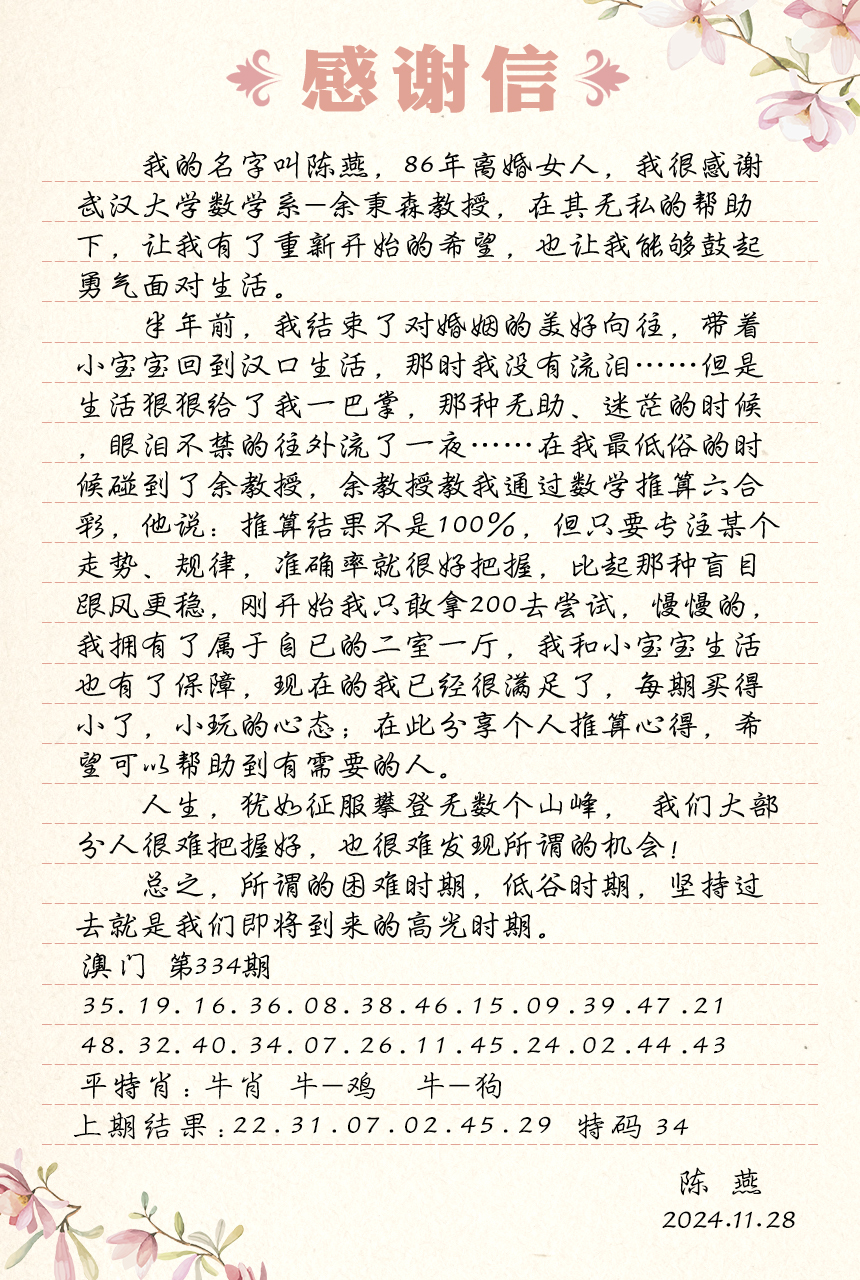 感谢信
我的名字叫陈燕，86年离婚女人，我很感谢
武汉大学数学系—余秉森教授，在其无私的帮助
下，让我有了重新开始的希望，也让我能够鼓起
勇气面对生活。
半年前，我结束了对婚姻的美好向往，带着
小宝宝回到汉口生活，那时我没有流泪……但是
生活狠狠给了我一巴掌，那种无助、迷茫的时候
，眼泪不禁的往外流了一夜……在我最低俗的时
候碰到了余教授，余教授教我通过数学推算六合
彩，他说：推算结果不是100%，但只要专注某个
走势、规律，准确率就很好把握，比起那种盲目
跟风更稳，刚开始我只敢拿200去尝试，慢慢的，
我拥有了属于自已的二室一厅，我和小宝宝生活
也有了保障，现在的我已经很满足了，每期买得
小了，小玩的心态；在此分享个人推算心得，希
望可以帮助到有需要的人。
人生，犹如征服攀登无数个山峰， 我们大部
分人很难把握好，也很难发现所谓的机会！
总之，所谓的困难时期，低谷时期，坚持过
去就是我们即将到来的高光时期。
澳门 第334期
35.19.16.36.08.38.46.15.09.39.47.21
48.32.40.34.07.26.11.45.24.02.44.43
平特肖：牛肖 牛—鸡 牛—狗
上期结果：22.31.07.02.45.29 特码 34
陈 燕
2024.11.28